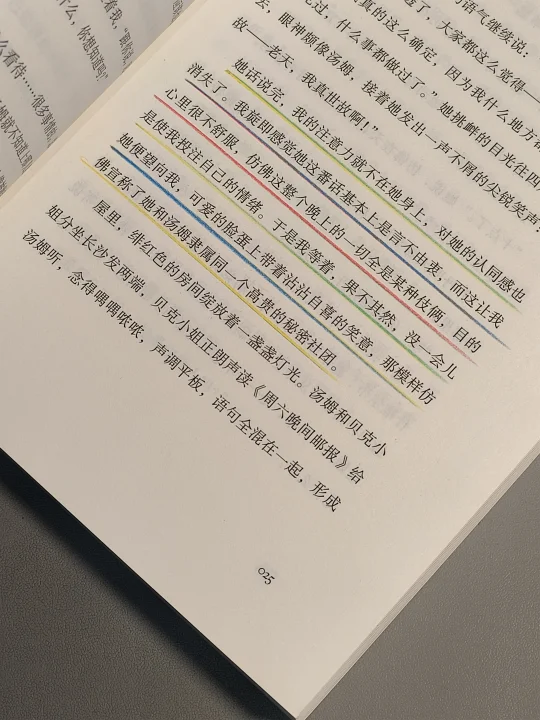 语气继续说：
了，大家都这么觉得——
真的这么确定，因为我什么地方都
过，什么事都做过了。”她挑衅的目光往四
去，眼神颇像汤姆，接着她发出一声不屑的尖锐笑声，
故——老天，我真世故啊！”
她话说完，我的注意力就不在她身上，对她的认同感也
消失了。我旋即感觉她这番话基本上是言不由衷，而这让我
心里很不舒服，仿佛这整个晚上的一切全是某种伎俩，目的
是使我投注自己的情绪。于是我等着，果不其然，没一会儿
她便望向我，可爱的脸蛋上带着沾沾自喜的笑意，那模样仿
佛宣称了她和汤姆隶属同一个高贵的秘密社团。
屋里，绯红色的房间绽放着一盏盏灯光。汤姆和贝克小
姐分坐长沙发两端，贝克小姐正朗声读《周六晚间邮报》给
汤姆听，念得喁喁哝哝，声调平板，语句全混在一起，形成
025